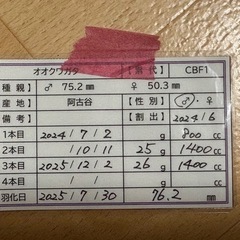 オオクワガタ 【累代】 CBF1
種親 ♂ 75.2mm ♀ 50.3mm
産地 阿古谷 【性別】 ♂・♀
備考 【割出】 2024/6
1本目 2024/7/2 g 800cc
2本目 /10/11 25g 1400cc
3本目 2025/2/2 26g 1400cc
4本目 / / g cc
羽化日 2025/7/30 76.2mm